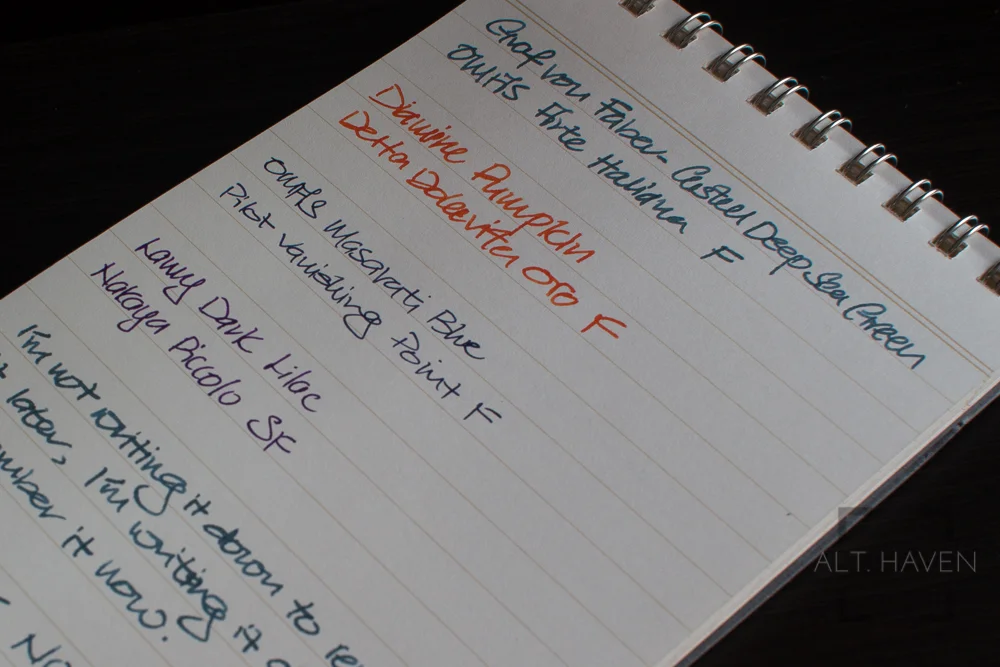 Graf von Faber-Casteel Deep Sea Green
OMAS Arte Italiana F
Diamine Pumpkin
Delta Dolcevita Oro F
OMAS Maserati Blue
Pilot Vanishing Point F
Lamy Dark Lilac
Nakaya Piccolo SF
I'm not writing it down to
later, I'm writing it
it now.
ALT. HAVEN